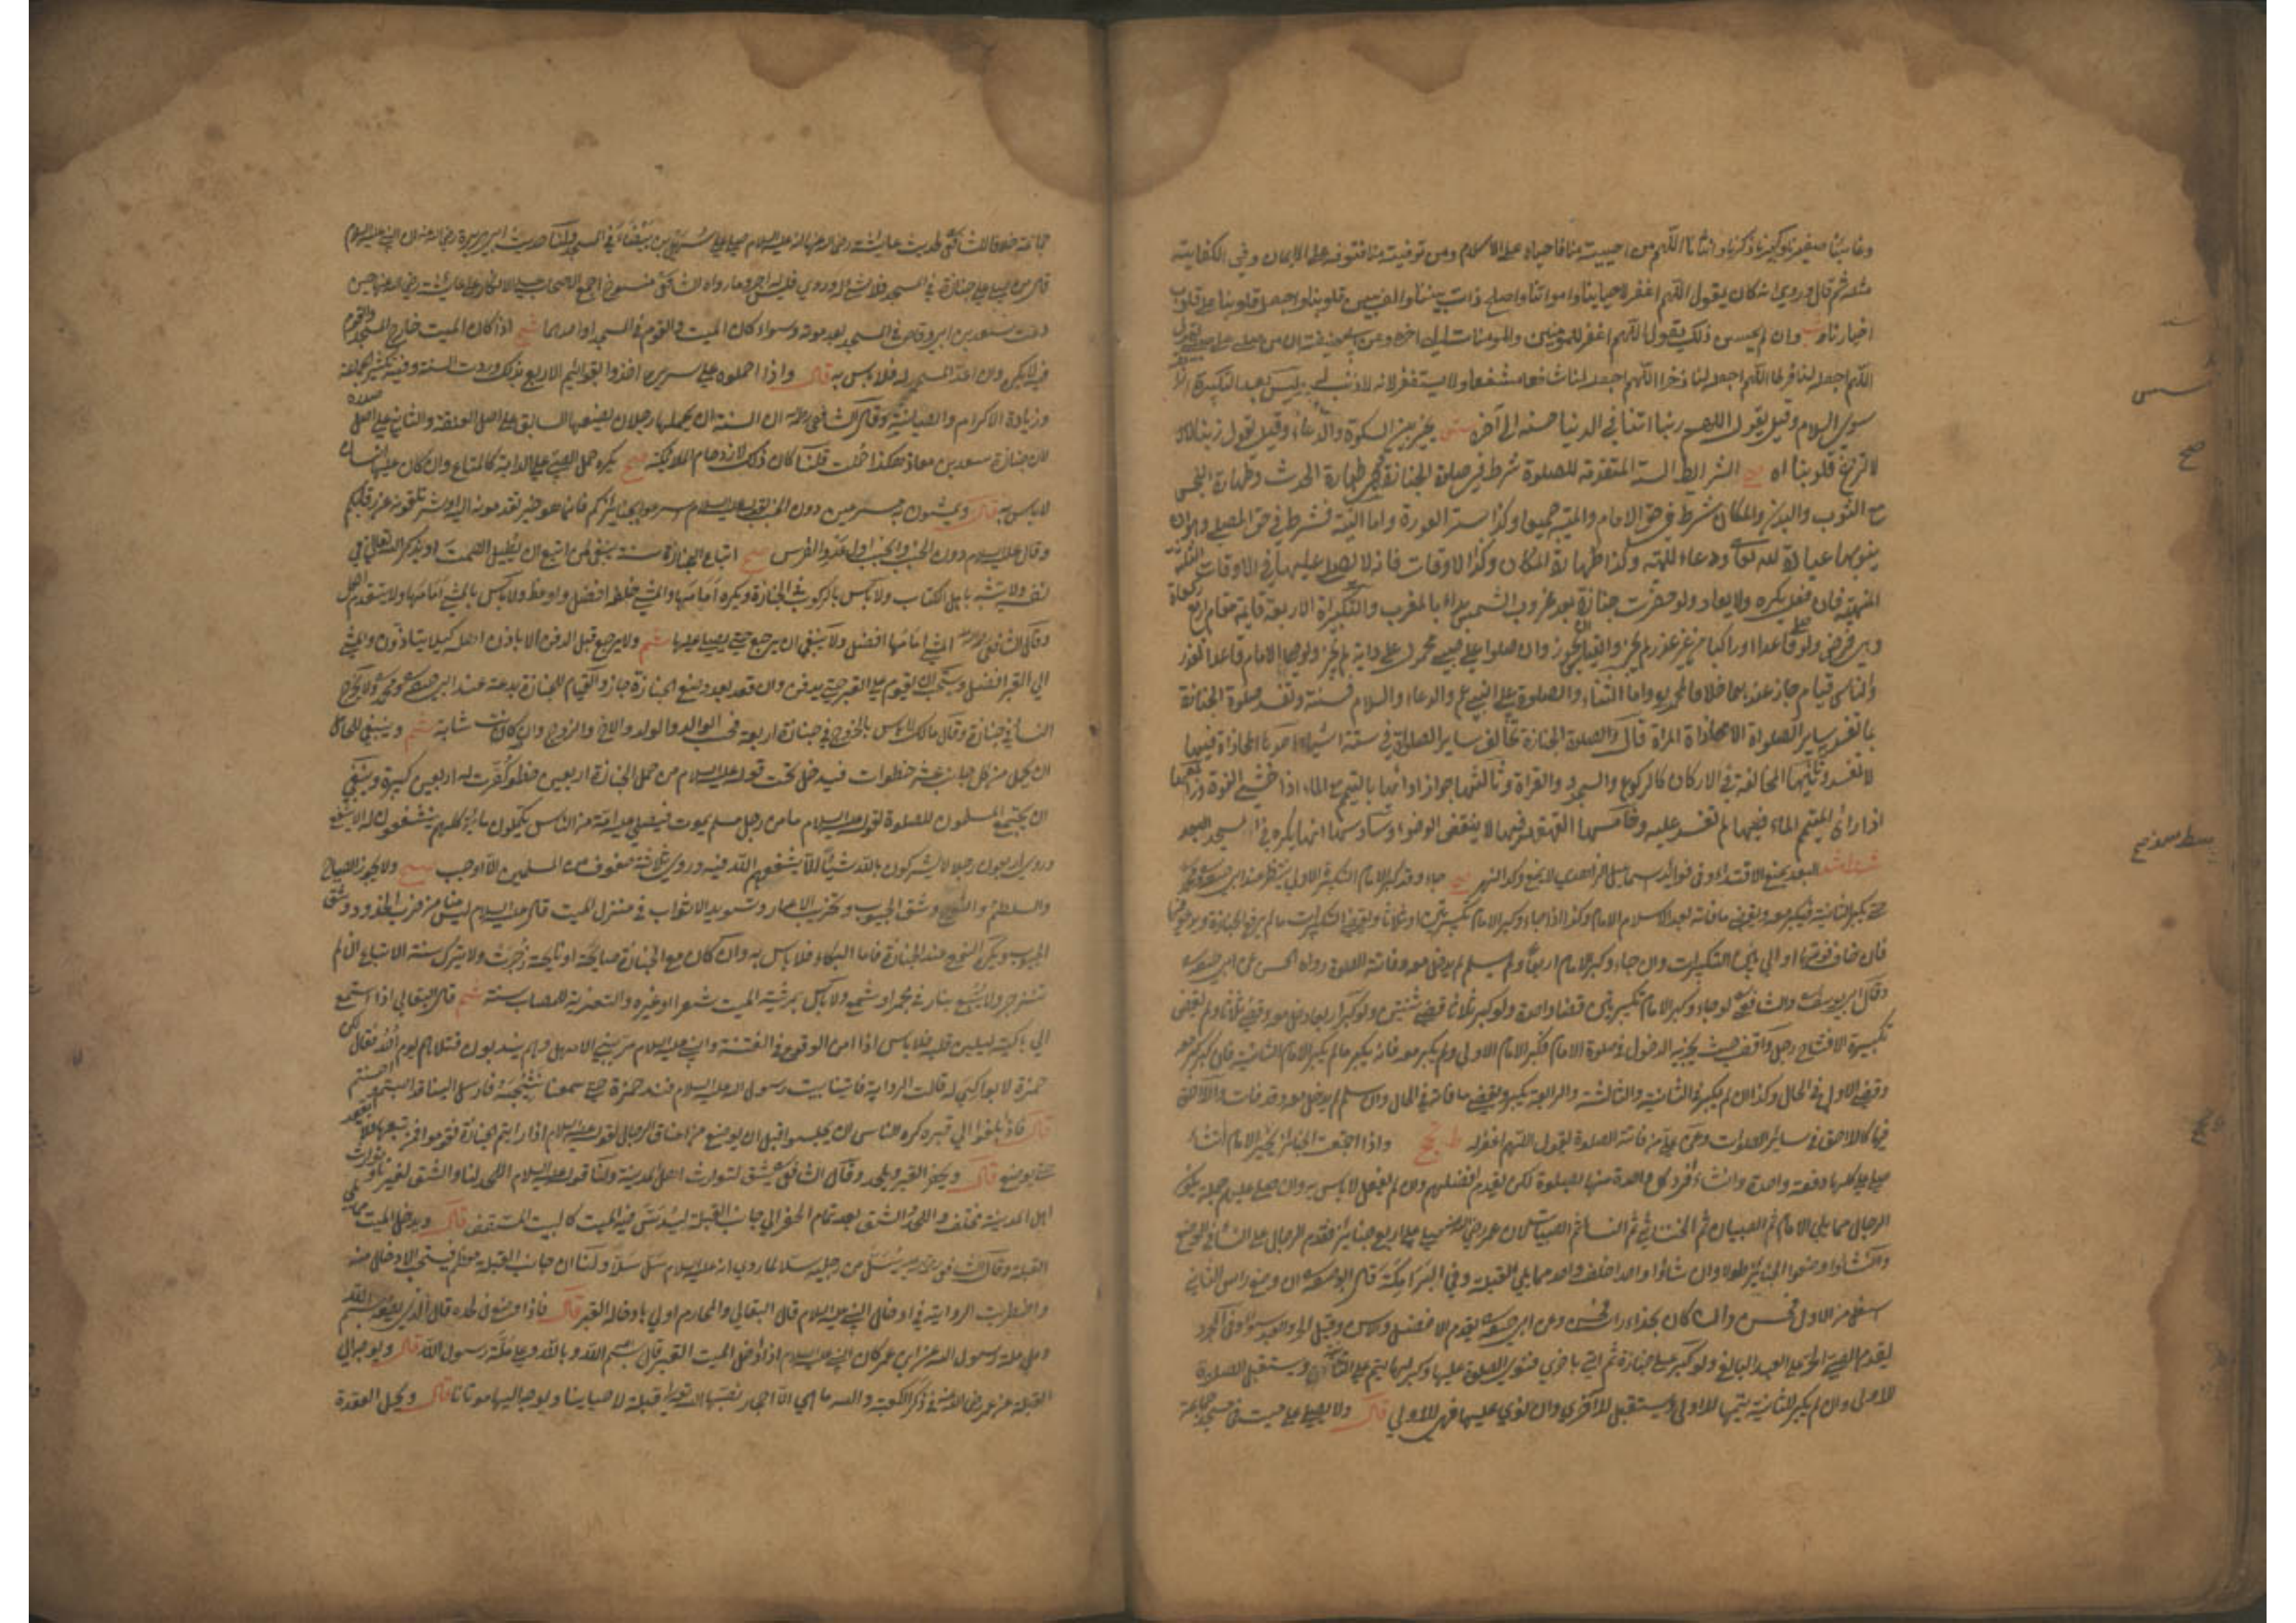 وغائبنا صغيرنا وكبيرنا وذكرنا وانثانا اللهم من احييته منا فاحياه على الاسلام ومن توفيته منا فتوفه على الايمان وفي الكفاية
مثله ثم قال وروي انه كان يقول اللهم اغفر لاحيائنا وامواتنا واصلح ذات بيننا والف بين قلوبنا واجعل قلوبنا على قلوب
اخيارنا وان لم يحسن ذلك يقول اللهم اغفر للمؤمنين والمؤمنات الى اخره وعن ابي حنيفة ان من صلى على صبي يقول
اللهم اجعله لنا فرطا اللهم اجعله لنا ذخرا اللهم اجعله لنا شافعا مشفعا ولا يستغفر لانه لا ذنب له وليس بعد التكبيرة
سوى السلام وقيل يقول اللهم ربنا اتنا في الدنيا حسنة الى آخره يخير بين السكوت والدعاء وقيل يقول ربنا
لا تزغ قلوبنا اه صح الشرائط الستة المتقدمة للصلوة شرط في صلوة الجنازة طهارة الحدث وطهارة النجس
من الثوب والبدن والمكان شرط في حق الامام والميت جميعا وكذا ستر العورة واما النية فشرط في حق المصلي
ينويها عبادة لله تعالى ودعاء للميت وكذا طهارة المكان وكذا الاوقات فانه لا يصلى عليها في الاوقات الثلثة
المنهية فان فعل يكره ولا يعاد ولو حضرت جنازة بعد غروب الشمس بدأ بالمغرب والتكبيرات الاربعة قايمة مقام اربع ركعات
وهي فرض ولو صلى قاعدا او راكبا من غير عذر لم يجز والقياس يجوز وان صلوا على صبي محمول على دابة لم يجز ولو صلى الامام قاعدا لعذر
والناس قيام جاز عندهما خلافا لمحمد واما الثناء والصلوة على النبي ع م والدعاء والسلام فسنة وتفسد صلوة الجنازة
بما تفسد سائر الصلوات الا محاذاة المراة قال والصلوة الجنازة تخالف سائر الصلوات في ستة اشياء احدها المحاذاة فيها
لا تفسد وثانيها المخالفة في الاركان كالركوع والسجود والقراة وثالثها جواز ادائها بالتيمم مع الماء اذا خشي الفوت ورابعها
اذا رائ المتيمم الماء فيها لم تفسد عليه وخامسها القهقهة فيها لا ينقض الوضوء وسادسها انها يكره في المسجد
البعد يمنع الاقتداء وفي فوائد اسماعيل الزاهدي لا يمنع وكذا النهر صح جاء وقد كبر الامام التكبيرة الاولى ينتظر عند ابي حنيفة ومحمد
حتى يكبر الثانية فيكبر معه ويقضي ما فاته بعد السلام الامام وكذا اذا جاء وكبر الامام تكبيرتين او ثلاثا ويقضي التكبيرات ما لم يرفع الجنازة
فان خاف فوتها والى بين التكبيرات وان جاء وكبر الامام اربعا ولم يسلم لم يدخل معه وفاتته الصلوة رواه الحسن عن ابي حنيفة
وقال ابو يوسف والشافعي لو جاء وكبر الامام تكبيرتين قضا واحدة ولو كبر ثلاثا قضى ثنتين ولو كبر اربعا دخل معه وقضى ثلاثا ولم يقض
تكبيرة الافتتاح رجل واقف حيث يجزيه الدخول في صلوة الامام فكبر الامام الاولى ولم يكبر معه فانه يكبر ما لم يكبر الامام الثانية فان كبر كبر معه
وقضى الاولى في الحال وكذا ان لم يكبر في الثانية والثالثة والرابعة يكبر ويقضي ما فاته في الحال وان سلم لم يدخل معه وقد فات واللاحق
فيها كاللاحق في سائر الصلوات وعن من فاتته الصلوة يقول اللهم اغفر له واذا اجتمعت الجنائز يخير الامام ان شاء
صلى على كلها دفعة واحدة وان شاء افرد كل واحدة منها بالصلوة لكن يقدم افضلهم وان لم يفعل لا باس به وان صلى عليهم جملة يكون
الرجال مما يلي الامام ثم الصبيان ثم الخناثى ثم النساء ثم الصبيات لان عمر رضي الله عنه صلى على اربع جنائز فقدم الرجال على النساء في الوضع
وان شاؤا وضعوا الجنائز طولا وان شاؤا واحدا خلف واحد مما يلي القبلة قال ابو حنيفة ان وضع راس الثاني
اسفل من الاول فحسن وان كان بحذاء راسه فحسن وعن ابي حنيفة يقدم الافضل والاسن وقيل الحر والعبد سواء وفي المجرد
يقدم الصبي الحر على العبد البالغ ولو كبر على جنازة ثم اتي باخرى فنوى الصلوة عليها وكبر لهما يتم على ويستقبل الصلوة
للاولى وان لم يكبر للثانية يتمها للاولى ويستقبل للاخرى وان نوى عليهما فهي للاولى قال ولا يصلى على ميت في مسجد جماعة
سند
صح
خلافا للشافعي لحديث عائشة رضي الله عنها انه عليه السلام صلى على سهيل بن بيضاء في المسجد ولنا حديث ابي هريرة رضي الله عنه ان النبي عليه السلام
قال من صلى على جنازة في المسجد فلا شئ له وروي فليس له اجر وما رواه الشافعي منسوخ اجمع الصحابة على الانكار على عائشة رضي الله عنها حين
دعت سعد بن ابي وقاص في المسجد بعد موته وسواء كان الميت والقوم في المسجد او احدهما شم اذا كان الميت خارج المسجد والقوم
فيه لا يكره وان اعد المسجد له فلا باس به قال واذا حملوه على سريره اخذوا بقوائمه الاربع بذلك وردت السنة وفيه تكثير الجماعة
وزيادة الاكرام والصيانة وقال الشافعي رحمه الله ان السنة ان يحملها رجلان يضعها السابق على اصل العنق والثاني على اصل صدره
لان جنازة سعد بن معاذ هكذا حملت قلنا كان ذلك لازدحام الملائكة صح يكره حمل الصبي على الدابة كالمتاع وان كان عليها انسان
لا باس به قال ويمشون به مسرعين دون الخبب لقوله عليه السلام اسرعوا بجنائزكم فانما هو خير تقدمونه اليه او شر تلقونه عن رقابكم
وقال عليه السلام دون الخبب والخبب اول عدو الفرس صح اتباع الجنازة سنة ينبغي لمن اتبع ان يطيل الصمت او يذكر الله تعالى في
نفسه ولا تشبه باهل الكتاب ولا باس بالركوب في الجنازة ويكره امامها والمشي خلفها افضل واوعظ ولا باس بالمشي امامها ولا يتقدم الكل
وقال الشافعي رحمه الله المشي امامها افضل ولا ينبغي ان يرجع حتى يصلى عليها شم ولا يرجع قبل الدفن الا باذن اهله كيلا يتاذون والمشي
الى القبر افضل ويستحب ان يقوم على القبر حتى يدفن وان قعد بعد وضع الجنازة جاز والقيام للجنازة بدعة عند ابي حنيفة ومحمد ولا يخرج
النساء في جنازة وقال مالك لا باس بالخروج في جنازة اربعة في الوالد والولد والاخ والزوج وان كانت شابة شم وينبغي لكل
ان يحمل من كل جانب عشر خطوات فيدخل تحت قوله عليه السلام من حمل الجنازة اربعين خطوة كفرت له اربعين كبيرة وينبغي
ان يجتمع المسلمون للصلوة لقوله عليه السلام ما من رجل مسلم يموت فيصلي عليه امة من الناس يكملون مائة كلهم يشفعون له الا يشفعوا
وروي اربعون رجلا لا يشركون بالله شيئا الا يشفعهم الله فيه وروي ثلاثة صفوف من المسلمين الا اوجب صح ولا يجوز الصياح
واللطم والنوح وشق الجيوب وتخريب الاعمار وتسويد الاثواب في منزل الميت قال عليه السلام ليس منا من ضرب الخدود وشق
الجيوب ويكره النوح عند الجنازة فاما البكاء فلا باس به وان كان مع الجنازة صايحة او نايحة زجرت ولا يترك سنة الاتباع ان لم
تنزجر ولا يتبع بنار في مجمر او شمع ولا باس بمرثية الميت شعرا وغيره والتعزية للمصاب سنة شم قال البقالي اذا استمع
الى باكية ليلين قلبه فلا باس اذا امن الوقوع في الفتنة والنبي عليه السلام مر ببني الاشهل وهم يندبون قتلاهم يوم احد فقال لكن
حمزة لا بواكي له قالت الرواية فاتينا بيت رسول الله عليه السلام فندب حمزة حتى سمعنا نشيجه فارسل الينا قد احسنتم
قال فاذا بلغوا الى قبره كره للناس ان يجلسوا قبل ان يوضع من اعناق الرجال لقوله عليه السلام اذا رايتم الجنازة فقوموا فمن تبعها فلا يقعد
حتى يوضع قال ويحفر القبر ويلحد وقال الشافعي يشق لتوارث اهل المدينة ولنا قوله عليه السلام اللحد لنا والشق لغيرنا وتوارث
اهل المدينة مختلف واللحد والشق بعد تمام الحفر الى جانب القبلة ليدس فيه الميت كالبيت المسقف قال ويدخل الميت مما يلي
القبلة وقال الشافعي رحمه الله يسل من رجليه سلا لما روي انه عليه السلام سل سلا ولنا ان جانب القبلة معظم فيستحب الادخال منه
واضطربت الرواية في ادخال النبي عليه السلام قال البقالي والمحارم اولى بادخاله القبر قال فاذا وضع في لحده قال الذي يضعه بسم الله
وعلى ملة رسول الله عن ابن عمر كان النبي عليه السلام اذا ادخل الميت القبر قال بسم الله وبالله وعلى ملة رسول الله قال ويوجه الى
القبلة عن عمر رضي الله عنه في ذكر الكعبة والله ما هي الا احجار نصبها الله تعالى قبلة لاحيائنا ويوجه اليها موتانا قال ويحل العقدة